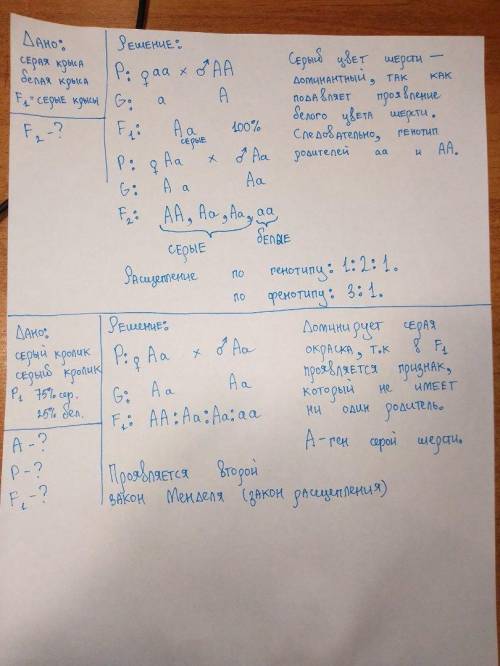 Дано:
серая крыса
белая крыса
F₁ = серые крысы
F₂ - ?
Решение:
P: ♀ aa × ♂ AA
G: a A
F₁: Aa 100%
серые
P: ♀ Aa × ♂ Aa
G: A a Aa
F₂: AA, Aa, Aa, aa
серые белые
Расщепление по генотипу: 1:2:1.
по фенотипу: 3:1.
Серый цвет шерсти –
доминантный, так как
подавляет проявление
белого цвета шерсти.
Следовательно, генотип
родителей aa и AA.
Дано:
серый кролик
серый кролик
P₁ 75% сер.
25% бел.
A - ?
P - ?
F₁ - ?
Решение:
P: ♀ Aa × ♂ Aa
G: A a Aa
F₁: AA : Aa : Aa : aa
Проявляется второй
закон Менделя (закон расщепления)
Доминирует серая
окраска, т.к в F₁
проявляется признак,
который не имеет
ни один родитель.
A - ген серой шерсти.